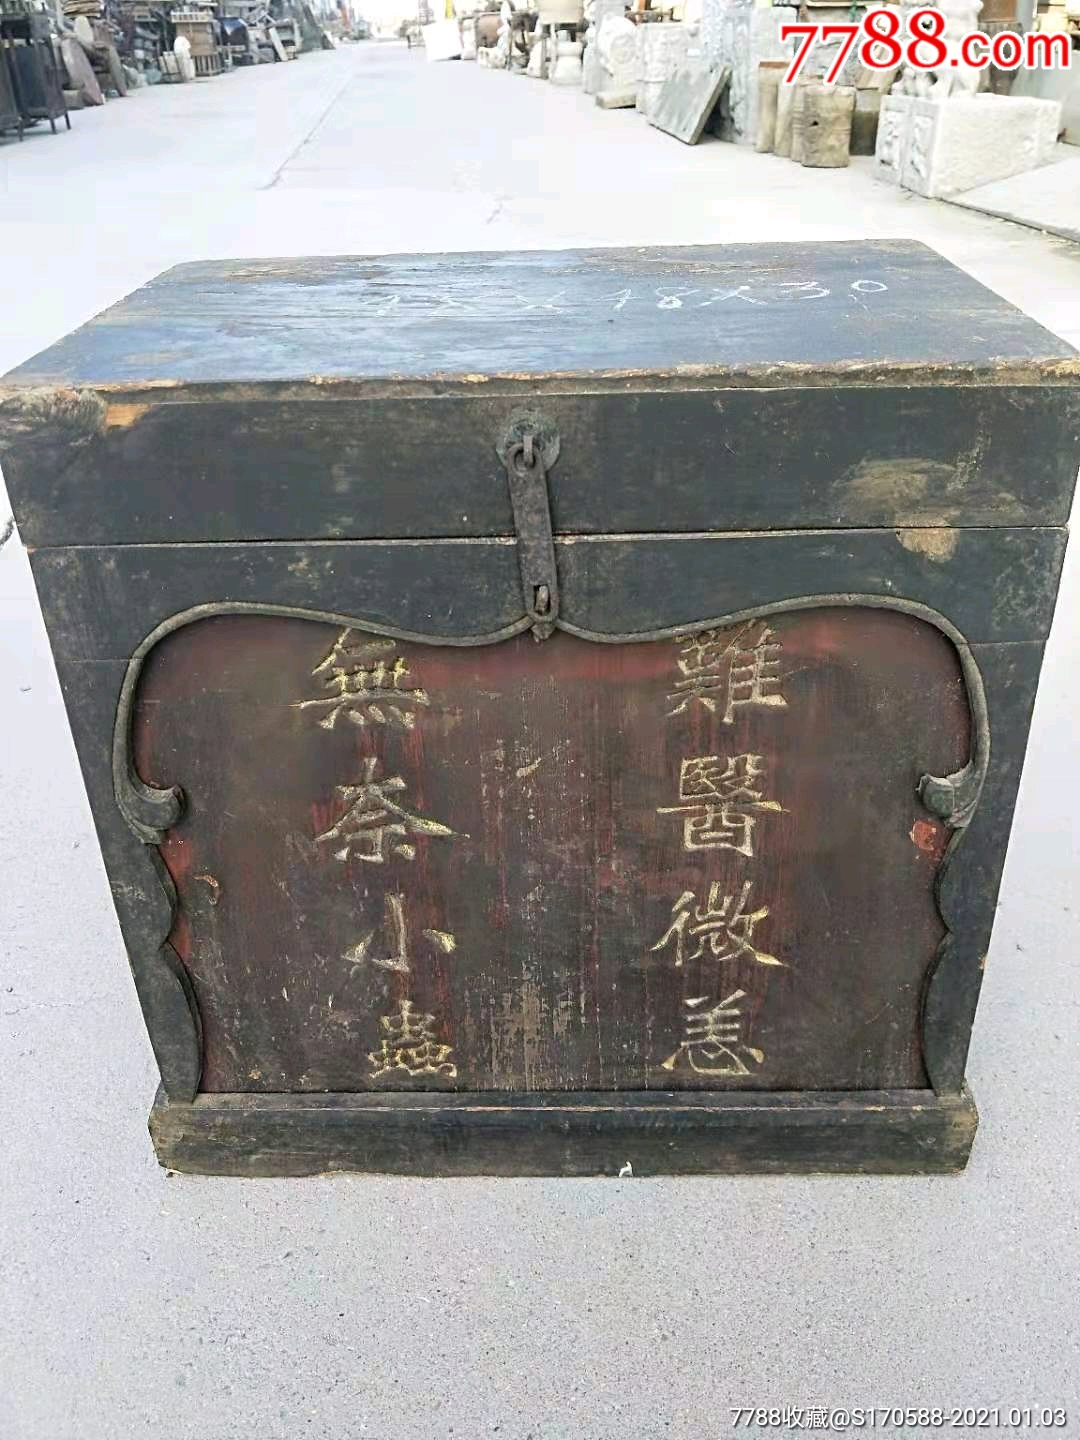 7788.com
48X48X30
難醫微恙
無奈小蟲
7788收藏@S170588-2021.01.03